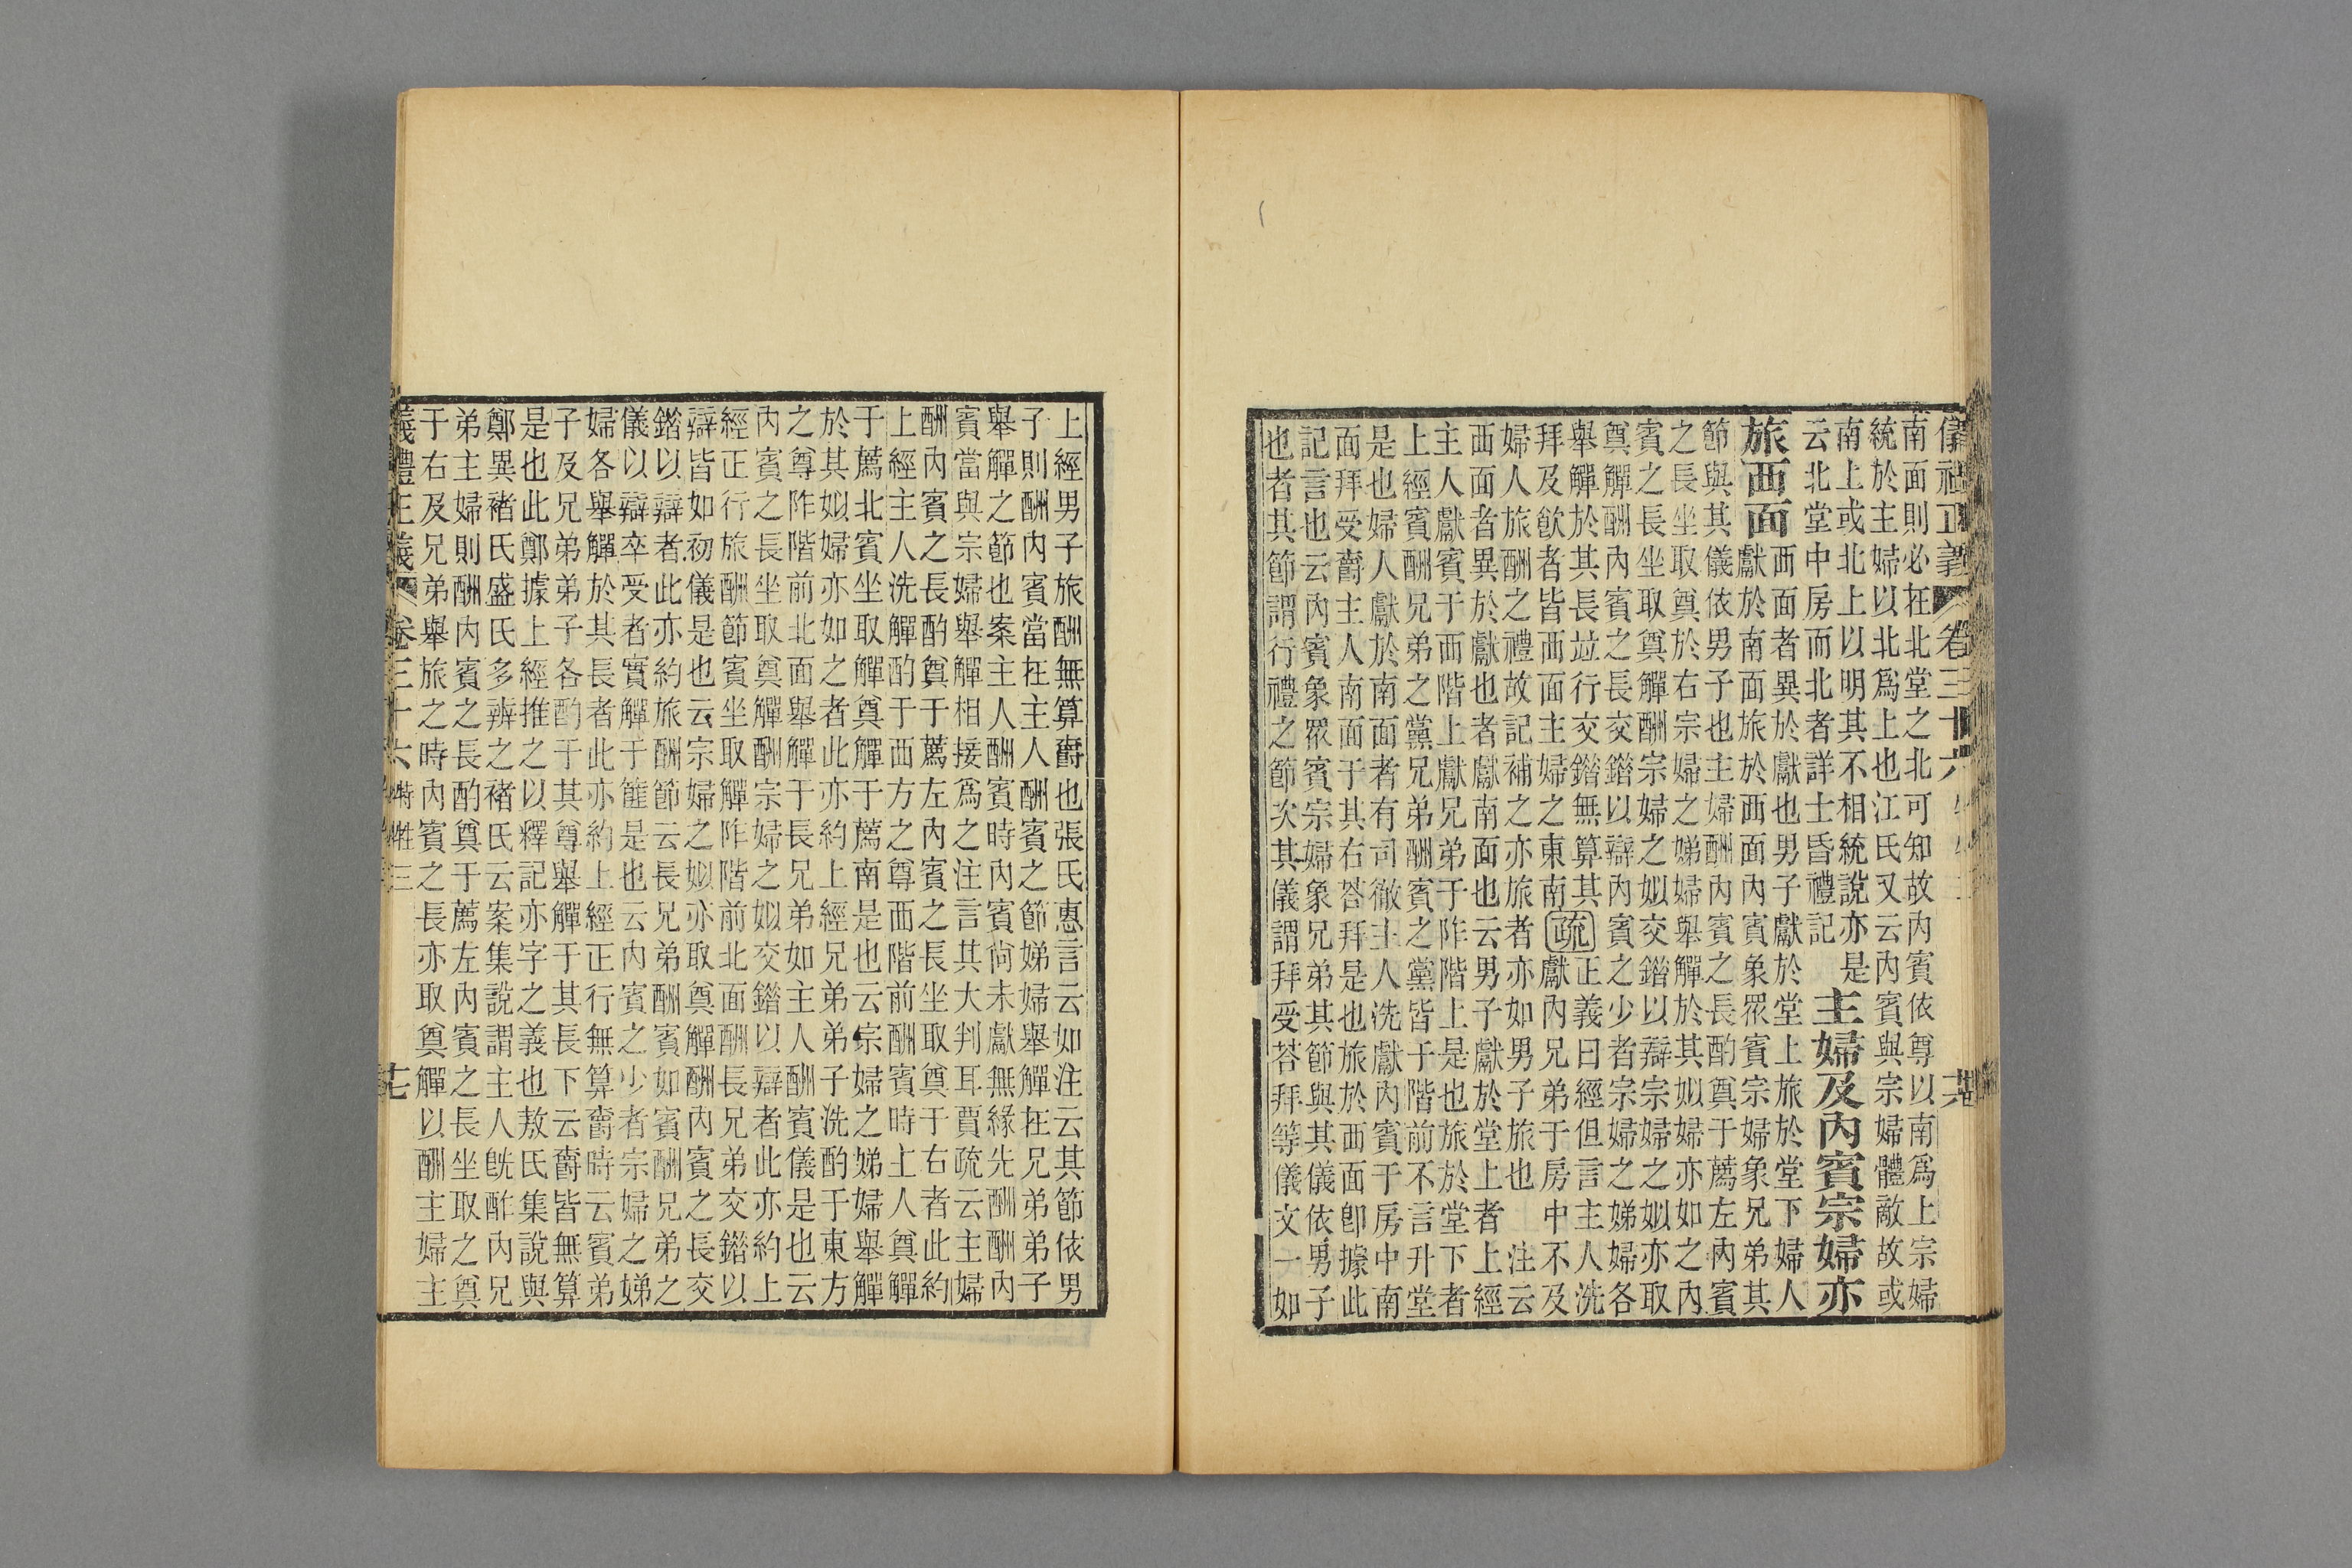 儀禮正義 卷三十六
南面則必在北堂之北可知故內賓依尊以南爲上宗婦
統於主婦以北爲上也江氏又云內賓與宗婦體敵故或
南上或北上以明其不相統說亦是
云北堂中房而北者詳士昏禮記
主婦及內賓宗婦亦
旅西面
西面者異於獻也男子獻於堂上旅於堂下婦人
獻於南面旅於西面內賓象眾賓宗婦象兄弟其
節與其儀依男子也主婦酬內賓之長酌奠于薦左內賓
之長坐取奠於右宗婦之娣婦舉觶於其姒婦亦如之內
賓之長坐取奠觶酬宗婦之姒交錯以辯宗婦之姒亦取
奠觶酬內賓之長交錯以辯內賓之少者宗婦之娣婦各
舉觶於其長竝行交錯無算其
拜及飮者皆西面主婦之東南
疏
正義曰經但言主人洗
獻內兄弟于房中不及
婦人旅酬之禮故記補之亦旅者亦如男子旅也注云
西面者異於獻也者獻南面也云男子獻於堂上者上經
主人獻賓于西階上獻兄弟于阼階上是也旅於堂下者
上經賓酬兄弟之黨兄弟酬賓之黨皆于階前不言升堂
是也婦人獻於南面者有司徹主人洗獻內賓于房中南
面拜受爵主人南面于其右荅拜是也旅於西面卽據此
記言也云內賓象眾賓宗婦象兄弟其節與其儀依男子
也者其節謂行禮之節次其儀謂拜受荅拜等儀文一如
上經男子旅酬無算爵也張氏惠言云如注云其節依男
子則酬內賓當在主人酬賓之節娣婦舉觶在兄弟弟子
舉觶之節也案主人酬賓時內賓尙未獻無緣先酬酬內
賓當與宗婦舉觶相接爲之注言其大判耳賈疏云主婦
酬內賓之長酌奠于薦左內賓之長坐取奠于右者此約
上經主人洗觶酌于西方之尊西階前酬賓時主人奠觶
于薦北賓坐取觶奠觶于薦南是也云宗婦之娣婦舉觶
於其姒婦亦如之者此亦約上經兄弟弟子洗酌于東方
之尊阼階前北面舉觶于長兄弟如主人酬賓儀是也云
內賓之長坐取奠觶酬宗婦之姒交錯以辯者此亦約上
經正行旅酬節賓坐取觶阼階前北面酬長兄弟交錯以
辯皆如初儀是也云宗婦之姒亦取奠觶酬內賓之長交
錯以辯者此亦約旅酬節云長兄弟酬賓如賓酬兄弟之
儀以辯卒受者實觶于篚是也云內賓之少者宗婦之娣
婦各舉觶於其長者此亦約上經正行無算爵時云賓弟
子及兄弟弟子各酌于其尊舉觶于其長下云爵皆無算
是也此鄭據上經推之以釋記亦字之義也敖氏集說與
鄭異褚氏盛氏多辨之褚氏云案集說謂主人旣酢內兄
弟主婦則酬內賓之長酌奠于薦左內賓之長坐取之奠
于右及兄弟舉旅之時內賓之長亦取奠觶以酬主婦主
儀禮正義 卷三十六 特牲三